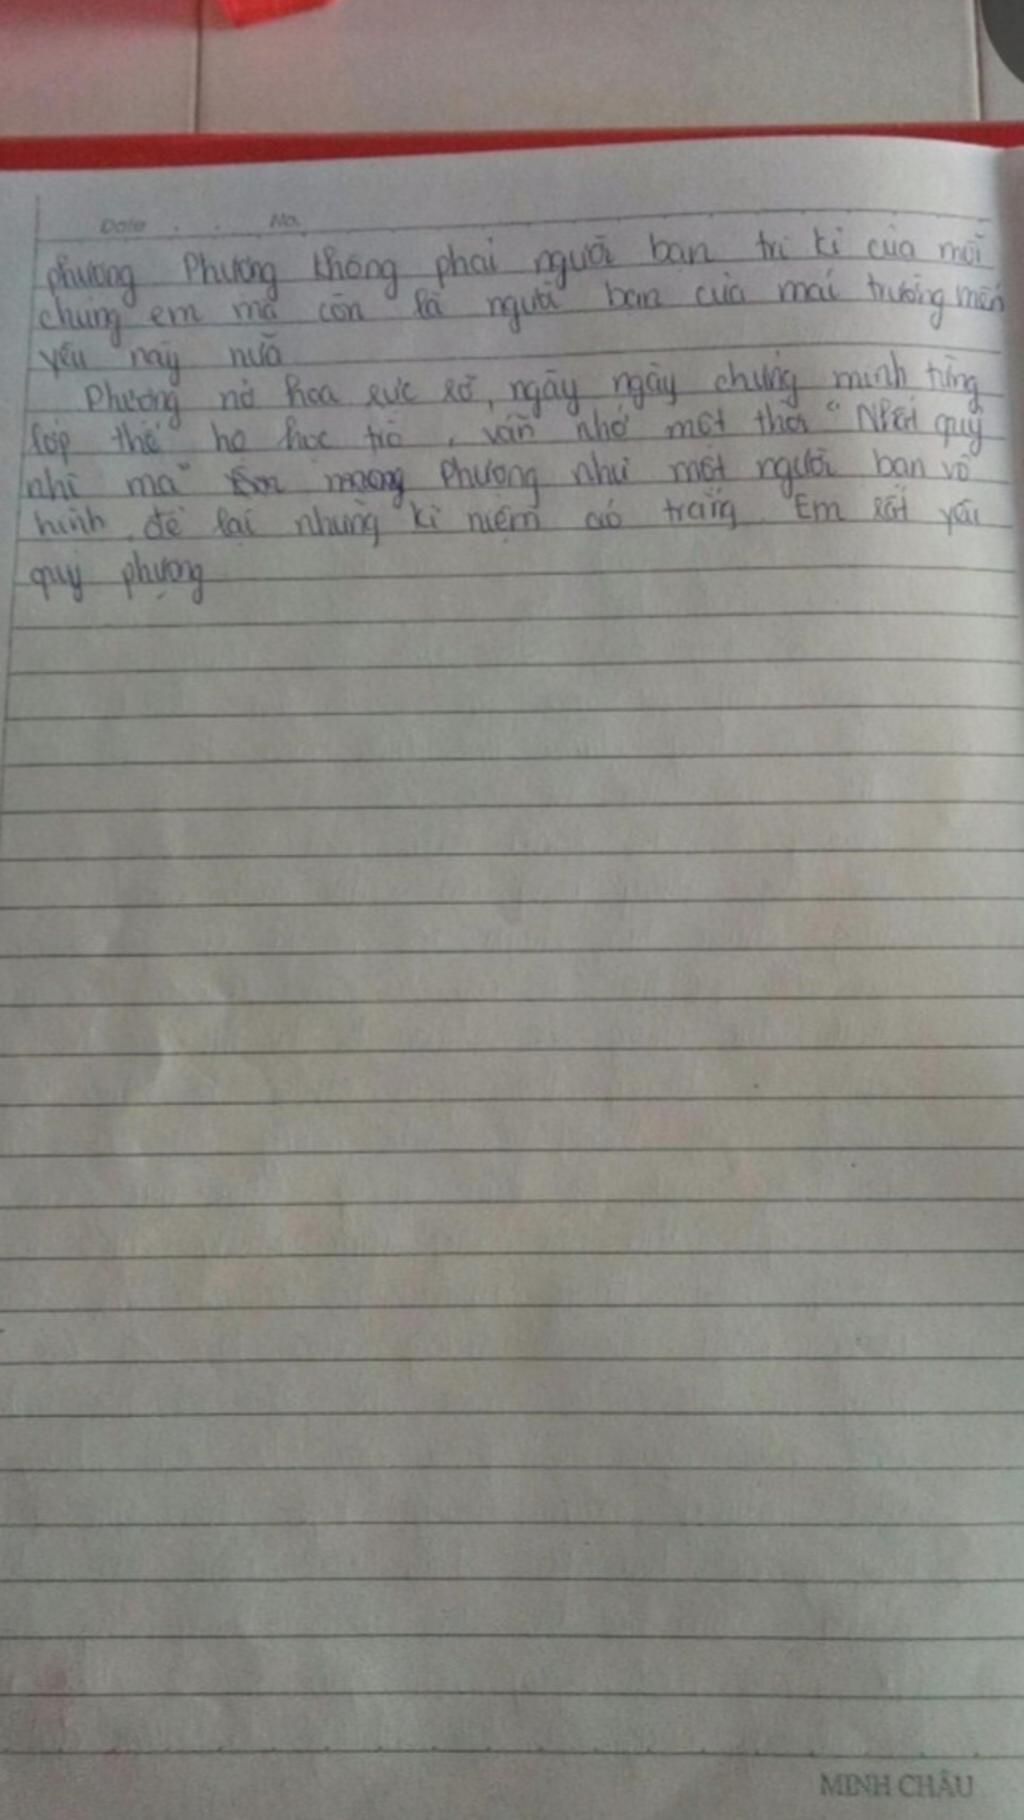 Date . . No.
phượng Phượng không phải người bạn tri kỉ của mỗi
chúng em mà còn là người bạn của mái trường mến
yêu này nữa
Phượng nở hoa rực rỡ, ngày ngày chứng minh từng
lớp thế hệ học trò, vẫn nhớ một thời "Nhất quỷ
nhì ma" Phượng như một người bạn vô
hình, để lại những kỉ niệm áo trắng. Em rất yêu
quý phượng
MINH CHÂU